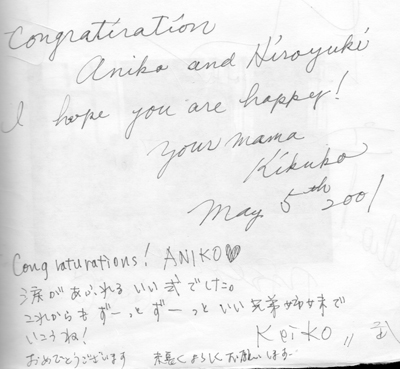 Congratiration
Aniko and Hiroyuki
I hope you are happy!
your mama
Kikuko
May 5th 2001
Conglaturations! ANIKO♡
涙があふれる いい式でした。
これからも ずーっと ずーっと いい 兄弟姉妹で
いこうね!
KeiKO
おめでとうございます 末長くよろしくお願いします…